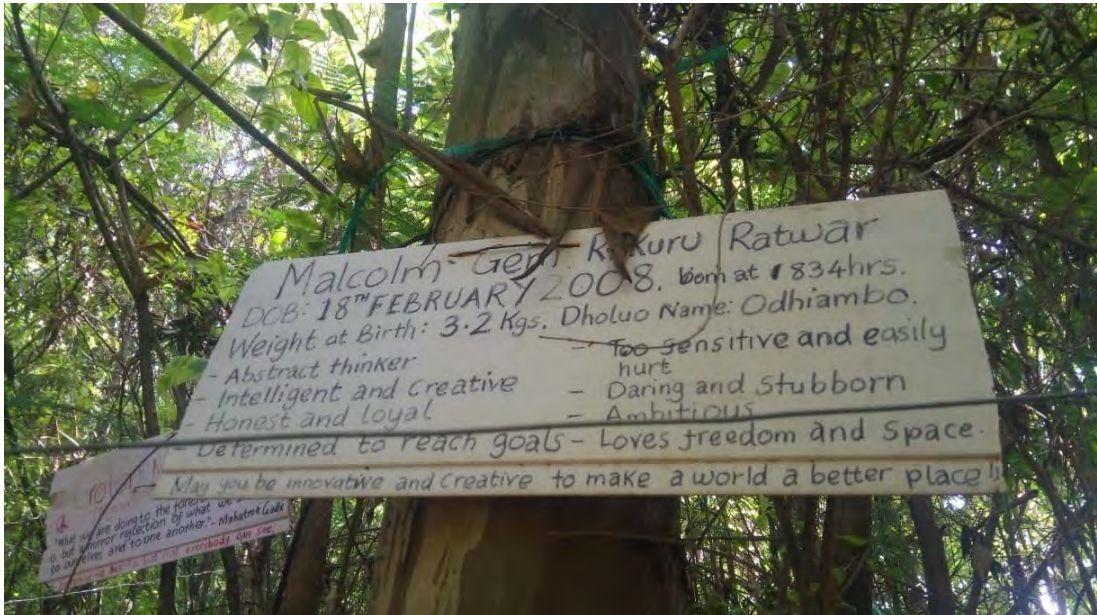 Malcolm Gem Rakuru Ratwar
DOB: 18TH FEBRUARY 2008. born at 1834hrs.
Weight at Birth: 3.2 Kgs. Dholuo Name: Odhiambo.
- Abstract thinker
- Intelligent and Creative
- Honest and loyal
- Determined to reach goals
- Too sensitive and easily
hurt
- Daring and Stubborn
- Ambitious
- Loves freedom and Space.
May you be innovative and Creative to make a world a better place!!
"What we are doing to the forest
is but a mirror reflection of what we
to ourselves and to one another." - Mahatma
not everybody can see.